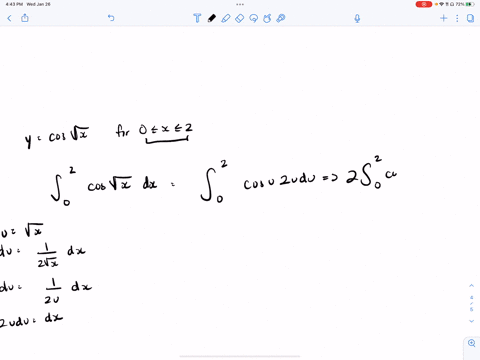 4:43 PM Wed Jan 26
72%
y = cos√x for 0 ≤ x ≤ 2
∫₀² cos√x dx = ∫₀² cos u 2u du => 2∫₀² co
u = √x
du = 1/(2√x) dx
du = 1/(2u) dx
2u du = dx
4/5